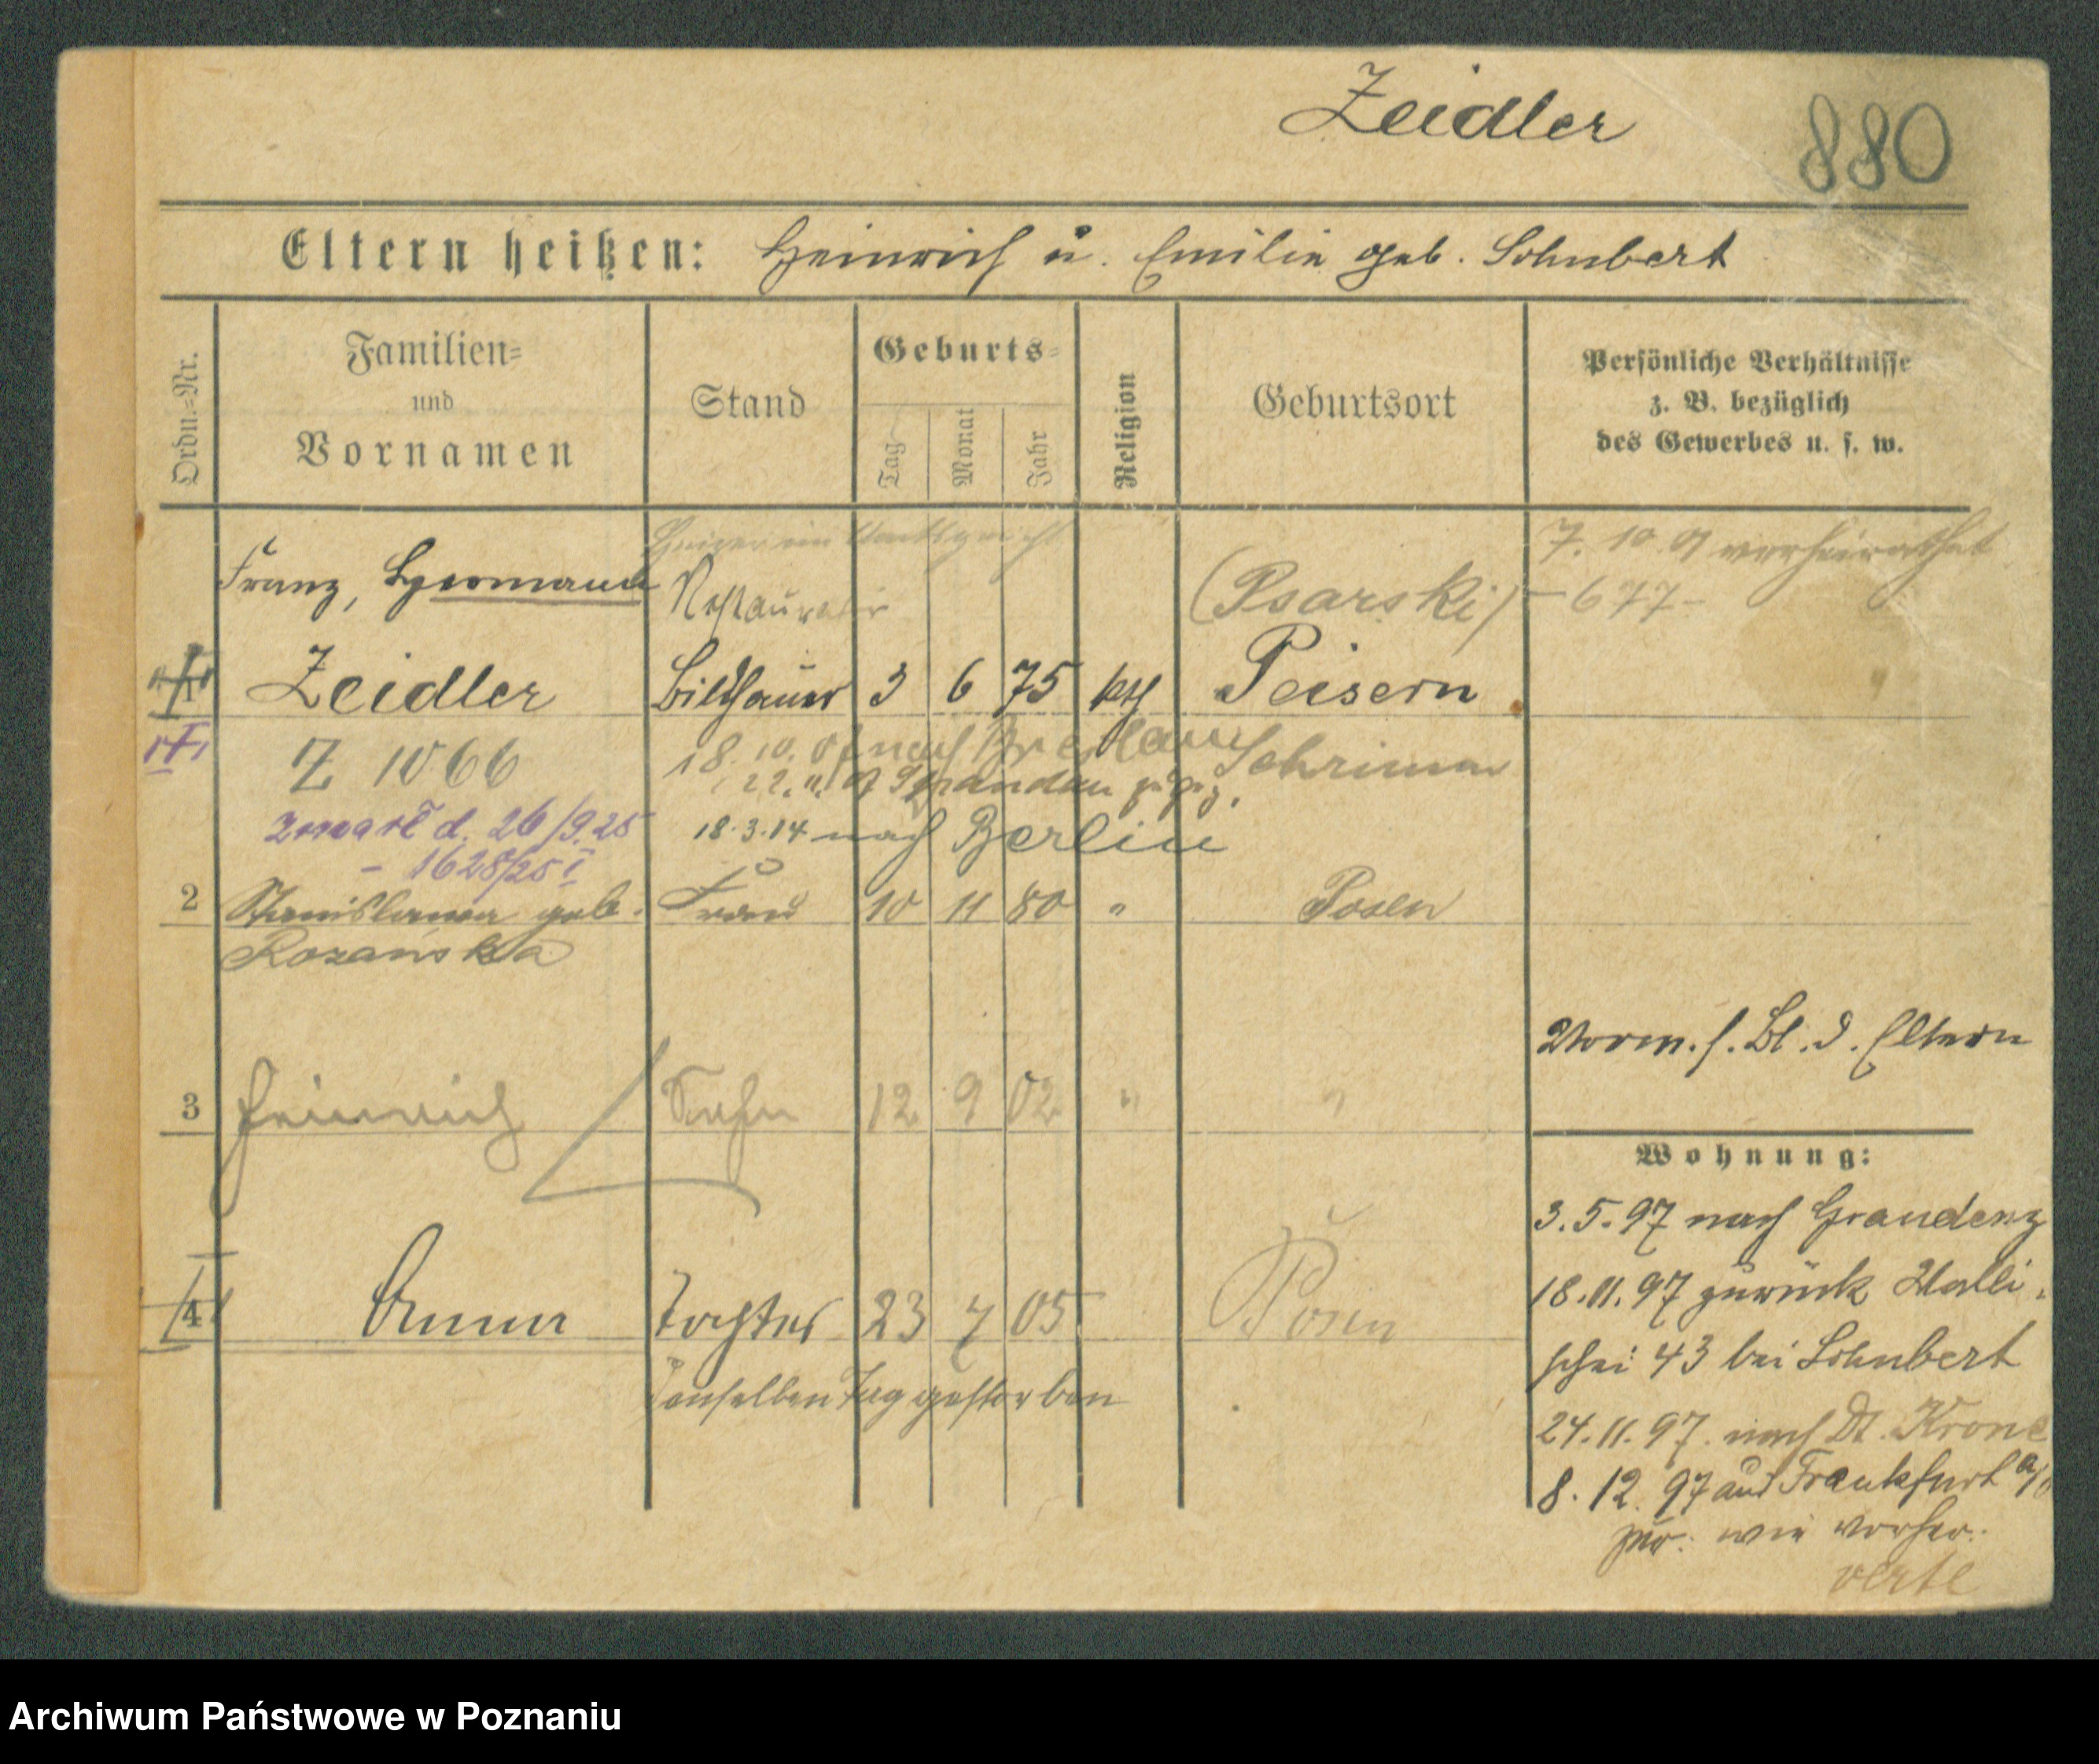 Zeidler
880
Eltern heißen: Heinrich u. Emilie geb. Schubert
Ordn.-Nr.
Familien-
und
Vornamen
Stand
Geburts-
Tag
Monat
Jahr
Religion
Geburtsort
Persönliche Verhältnisse
z. B. bezüglich
des Gewerbes u. s. w.
Heizer im
7. 10. 01 verheirathet
Franz, Hermann
Restaurateur
(Psarski)
- 677 -
1
Zeidler
Bildhauer
3
6
75
kth
Peisern
Z 1066
18. 10. 07 nach Breslau
Schrimm
22. 11. 07 Spandau zugez.
zmarł d. 26/9.25
18.3.14 nach Berlin
- 1628/25 I
2
Stanislawa geb.
Frau
10
11
80
"
Posen
Rozańska
Vorm. s. Bl. d. Eltern
3
Heinrich
Sohn
12
9
02
"
"
Wohnung:
3.5.97 nach Graudenz
18.11.97 zurück Walli-
4
Anna
Tochter
23
7
05
Posen
schei 43 bei Schubert
denselben Tag gestorben
24.11.97. nach Dt. Krone
8. 12. 97 aus Frankfurt a/O
zur. wie vorher.
verte
Archiwum Państwowe w Poznaniu